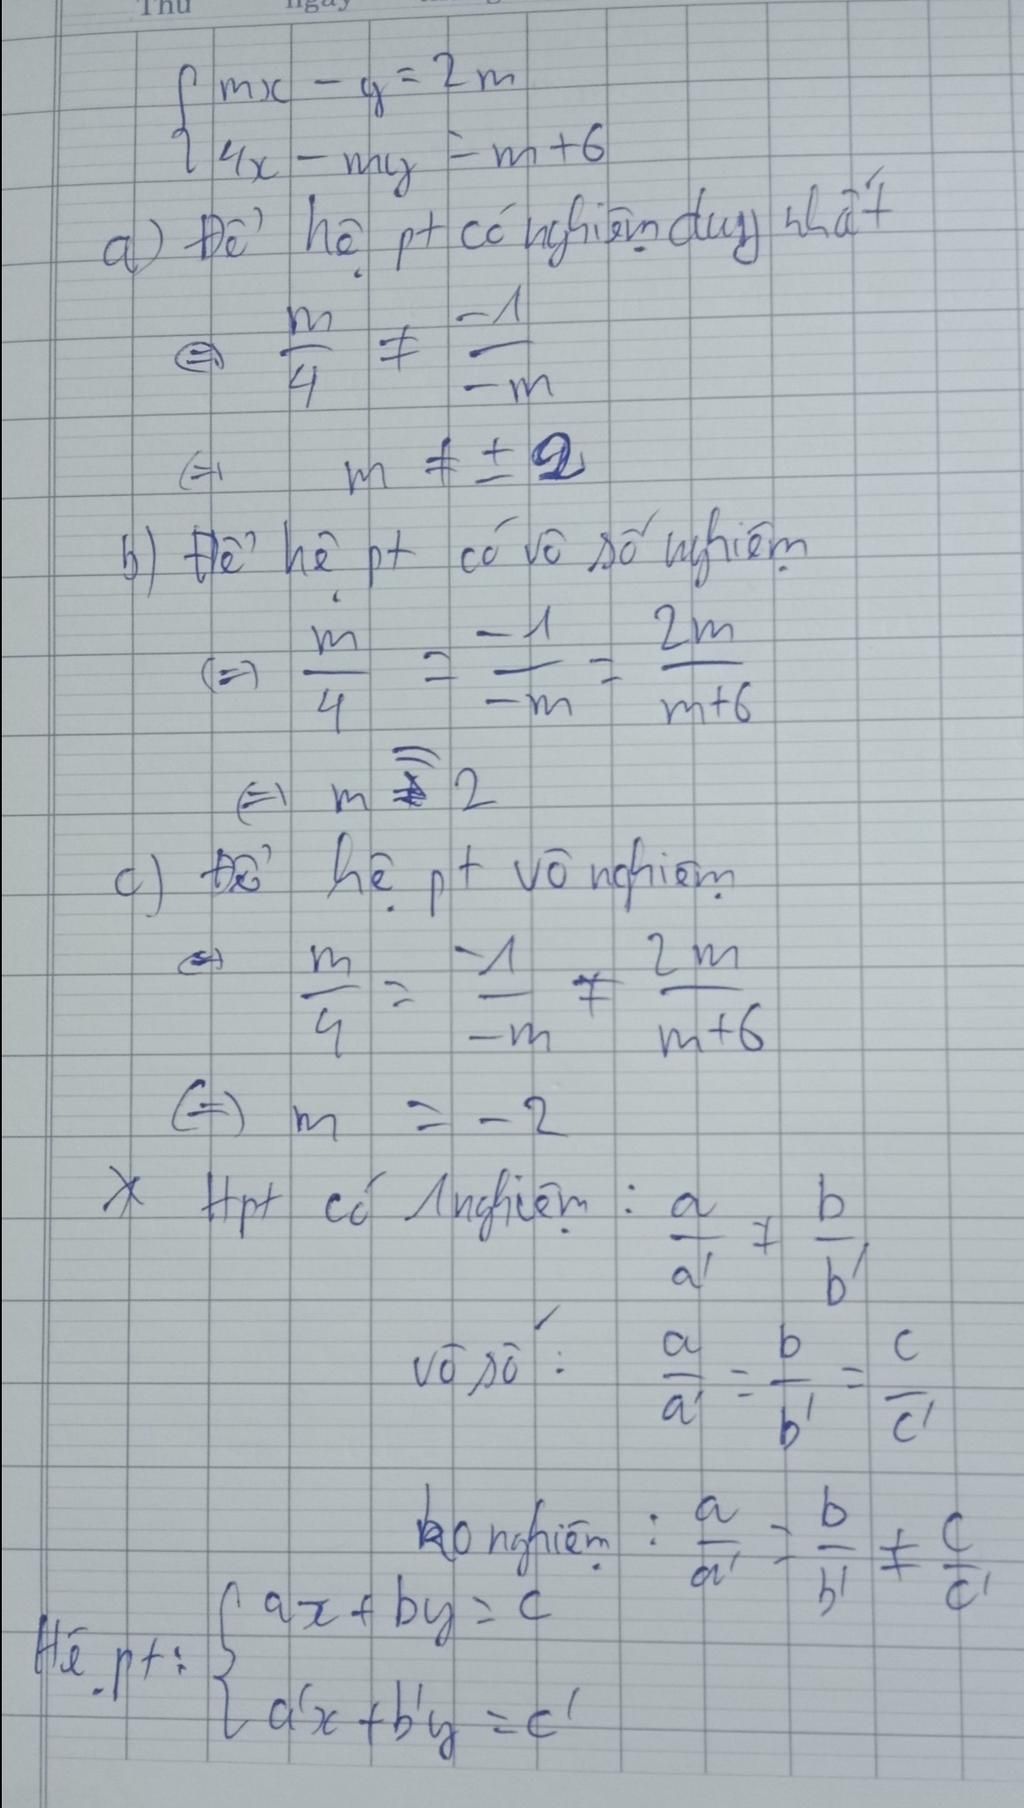 Thứ ngày
{ mx - y = 2m
4x - my = m+6
a) Để hệ pt có nghiệm duy nhất
⇔ m/4 ≠ -1/-m
⇔ m ≠ ± 2
b) Để hệ pt có vô số nghiệm
⇔ m/4 = -1/-m = 2m/m+6
⇔ m = 2
c) Để hệ pt vô nghiệm
⇔ m/4 = -1/-m ≠ 2m/m+6
⇔ m = -2
* Hpt có 1 nghiệm : a/a' ≠ b/b'
vô số : a/a' = b/b' = c/c'
ko nghiệm : a/a' = b/b' ≠ c/c'
Hệ pt : { ax + by = c
a'x + b'y = c'